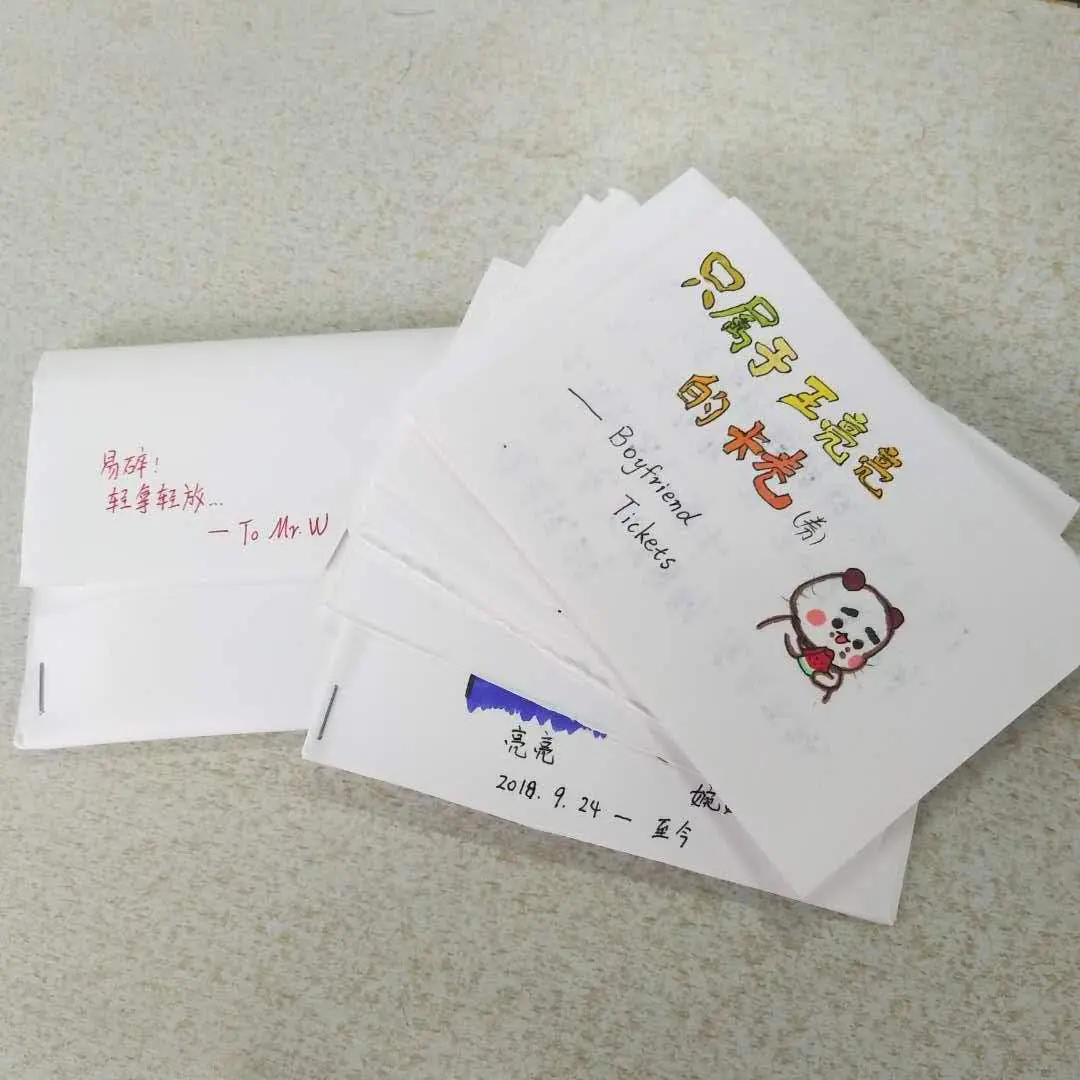 易碎！
轻拿轻放...
— To Mr. W
只属于王亮亮
的卡老(券)
— Boyfriend
Tickets
亮亮
婉
2018.9.24 — 至今